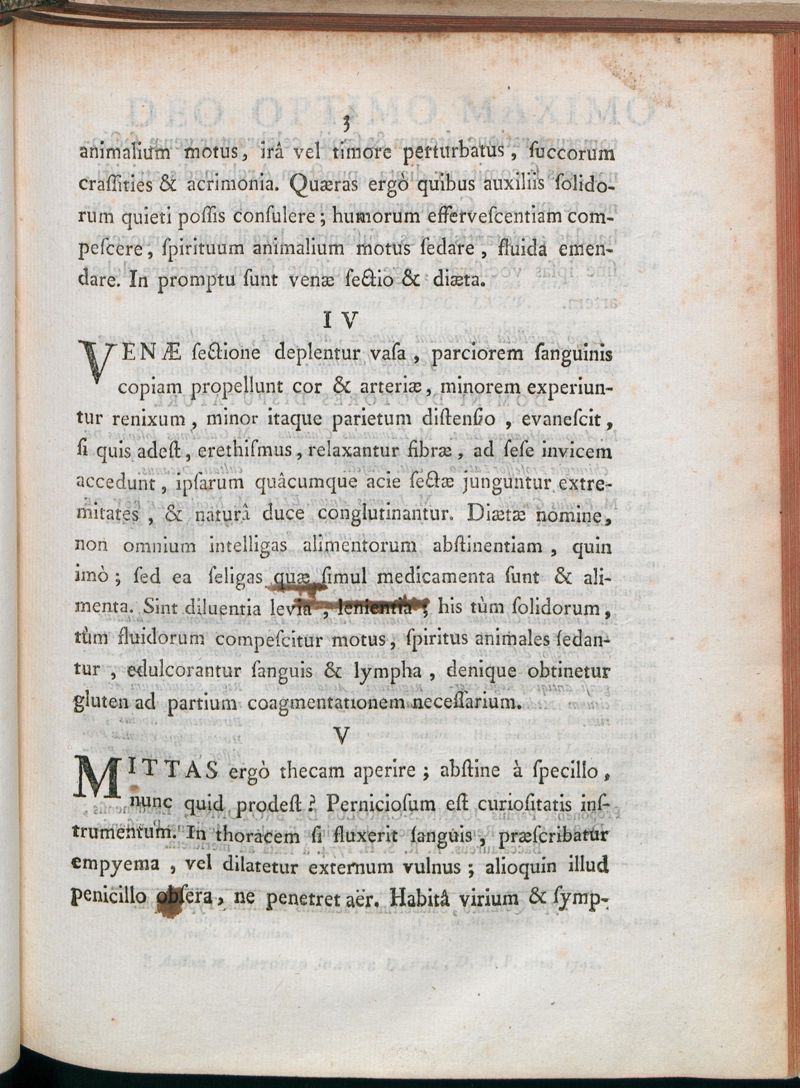 3
animalium motus, irâ vel timore perturbatus, ſuccorum
craſſities & acrimonia. Quæras ergò quibus auxiliis ſolido-
rum quieti poſſis conſulere; humorum efferveſcentiam com-
peſcere, ſpirituum animalium motus ſedare, fluida emen-
dare. In promptu ſunt venæ ſectio & diæta.
IV
VENÆ ſectione deplentur vaſa, parciorem ſanguinis
copiam propellunt cor & arteriæ, minorem experiun-
tur renixum, minor itaque parietum diſtenſio, evaneſcit,
ſi quis adeſt, erethiſmus, relaxantur fibræ, ad ſeſe invicem
accedunt, ipſarum quâcumque acie ſectæ junguntur extre-
mitates, & naturâ duce conglutinantur. Diætæ nomine,
non omnium intelligas alimentorum abſtinentiam, quin
imò; ſed ea ſeligas quæ ſimul medicamenta ſunt & ali-
menta. Sint diluentia levia, lenientia; his tùm ſolidorum,
tùm fluidorum compeſcitur motus, ſpiritus animales ſedan-
tur, edulcorantur ſanguis & lympha, denique obtinetur
gluten ad partium coagmentationem neceſſarium.
V
MITTAS ergò thecam aperire; abſtine à ſpecillo,
nunc quid prodeſt? Pernicioſum eſt curioſitatis inſ-
trumentum. In thoracem ſi fluxerit ſanguis, præſcribatur
empyema, vel dilatetur externum vulnus; alioquin illud
penicillo obſera, ne penetret aër. Habitâ virium & ſymp-